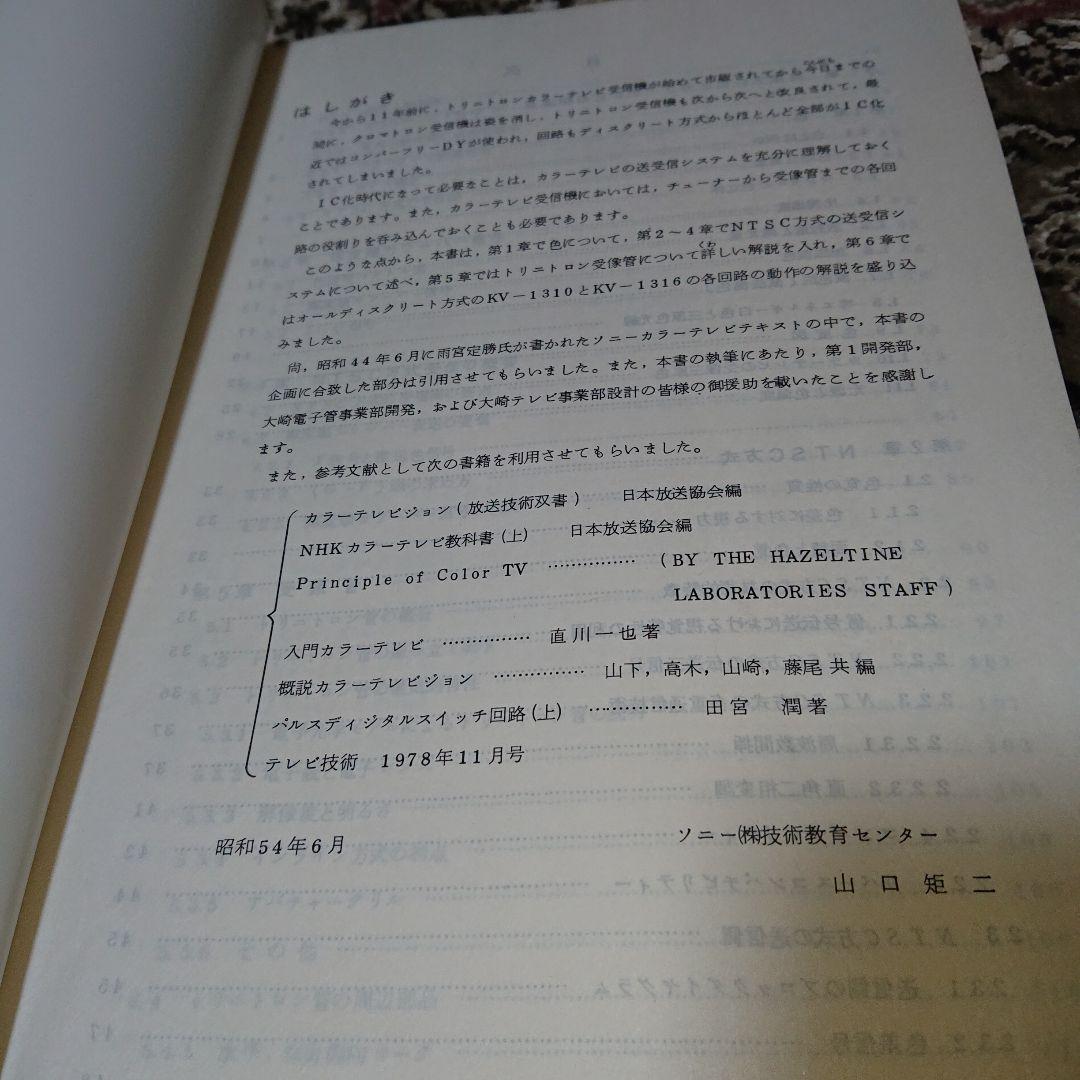 はしがき
今から11年前に，トリニトロンカラーテレビ受信機が始めて市販されてから今日までの
間に，クロマトロン受信機は姿を消し，トリニトロン受信機も次から次へと改良されて，最
近ではコンバーフリーDYが使われ，回路もディスクリート方式からほとんど全部がIC化
されてしまいました。
IC化時代になって必要なことは，カラーテレビの送受信システムを充分に理解しておく
ことであります。また，カラーテレビ受信機においては，チューナーから受像管までの各回
路の役割りを呑み込んでおくことも必要であります。
このような点から，本書は，第1章で色について，第2～4章でNTSC方式の送受信シ
ステムについて述べ，第5章ではトリニトロン受像管について詳しい解説を入れ，第6章で
はオールディスクリート方式のKV－1310とKV－1316の各回路の動作の解説を盛り込
みました。
尚，昭和44年6月に雨宮定勝氏が書かれたソニーカラーテレビテキストの中で，本書の
企画に合致した部分は引用させてもらいました。また，本書の執筆にあたり，第1開発部，
大崎電子管事業部開発，および大崎テレビ事業部設計の皆様の御援助を載いたことを感謝し
ます。
また，参考文献として次の書籍を利用させてもらいました。
カラーテレビジョン(放送技術双書) 日本放送協会編
NHKカラーテレビ教科書(上) 日本放送協会編
Principle of Color TV ……………(BY THE HAZELTINE
LABORATORIES STAFF)
入門カラーテレビ ……………直川一也著
概説カラーテレビジョン ……………山下，高木，山崎，藤尾 共編
パルスディジタルスイッチ回路(上) ……………田宮 潤著
テレビ技術 1978年11月号
昭和54年6月
ソニー㈱技術教育センター
山口矩二